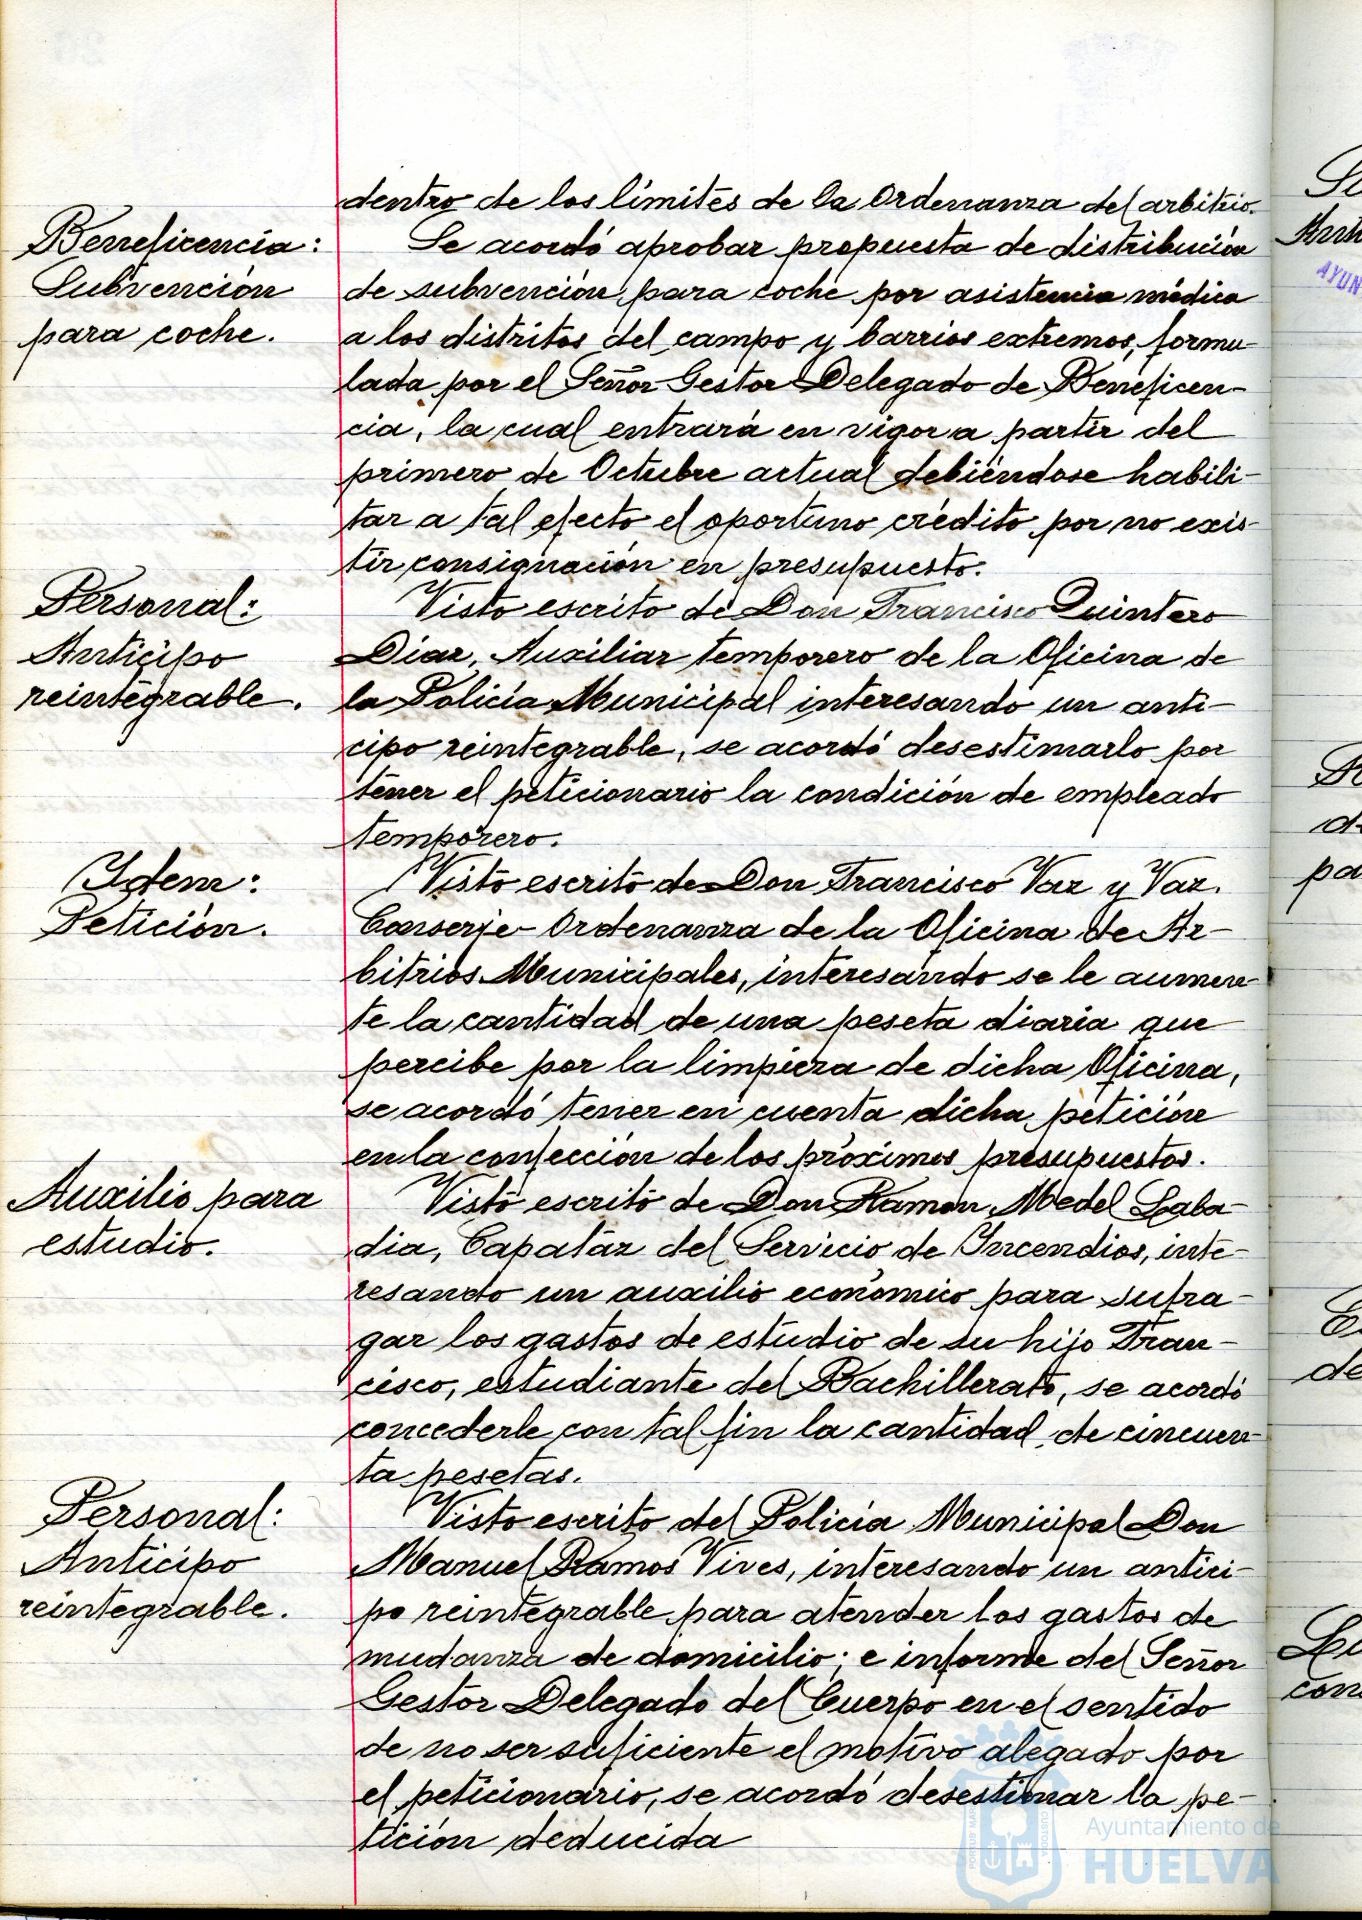 dentro de los límites de la Ordenanza del arbitrio.
Beneficencia:
Subvención
para coche.
Se acordó aprobar propuesta de distribución
de subvención para coche por asistencia médica
a los distritos del campo y barrios extremos, formu-
lada por el Señor Gestor Delegado de Beneficen-
cia, la cual entrará en vigor a partir del
primero de Octubre actual debiéndose habili-
tar a tal efecto el oportuno crédito por no exis-
tir consignación en presupuesto.
Personal:
Anticipo
reintegrable.
Visto escrito de Don Francisco Quintero
Diaz, Auxiliar temporero de la Oficina de
la Policía Municipal interesando un anti-
cipo reintegrable, se acordó desestimarlo por
tener el peticionario la condición de empleado
temporero.
Ydem:
Petición.
Visto escrito de Don Francisco Vaz y Vaz.
Conserje-Ordenanza de la Oficina de Ar-
bitrios Municipales, interesando se le aumen-
te la cantidad de una peseta diaria que
percibe por la limpieza de dicha Oficina,
se acordó tener en cuenta dicha petición
en la confección de los próximos presupuestos.
Auxilio para
estudio.
Visto escrito de Don Ramon Medel Laba-
dia, Capataz del Servicio de Yncendios, inte-
resando un auxilio económico para sufra-
gar los gastos de estudio de su hijo Fran-
cisco, estudiante del Bachillerato, se acordó
concederle con tal fin la cantidad de cincuen-
ta pesetas.
Personal:
Anticipo
reintegrable.
Visto escrito del Policía Municipal Don
Manuel Ramos Vives, interesando un antici-
po reintegrable para atender los gastos de
mudanza de domicilio; e informe del Señor
Gestor Delegado del Cuerpo en el sentido
de no ser suficiente el motivo alegado por
el peticionario, se acordó desestimar la pe-
tición deducida
Ayuntamiento de
HUELVA